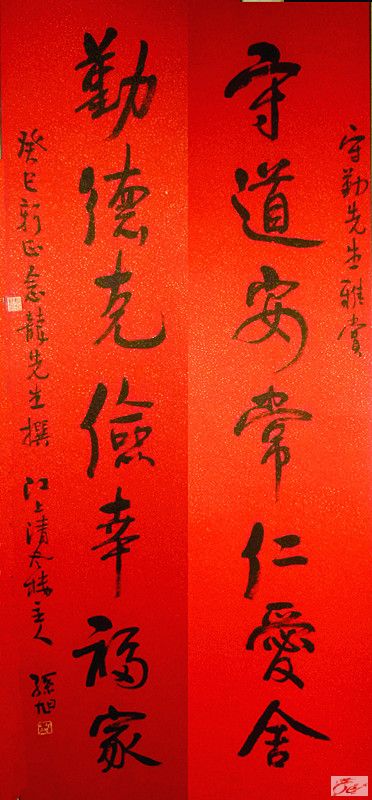 守勤先生雅赏
守道安常仁愛舍
勤德克儉幸福家
癸巳新正念龍先生撰 江上清令楼主人 孫旭